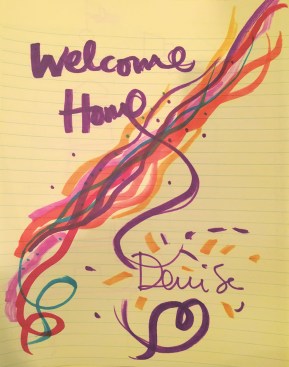 Welcome
Home
Denise